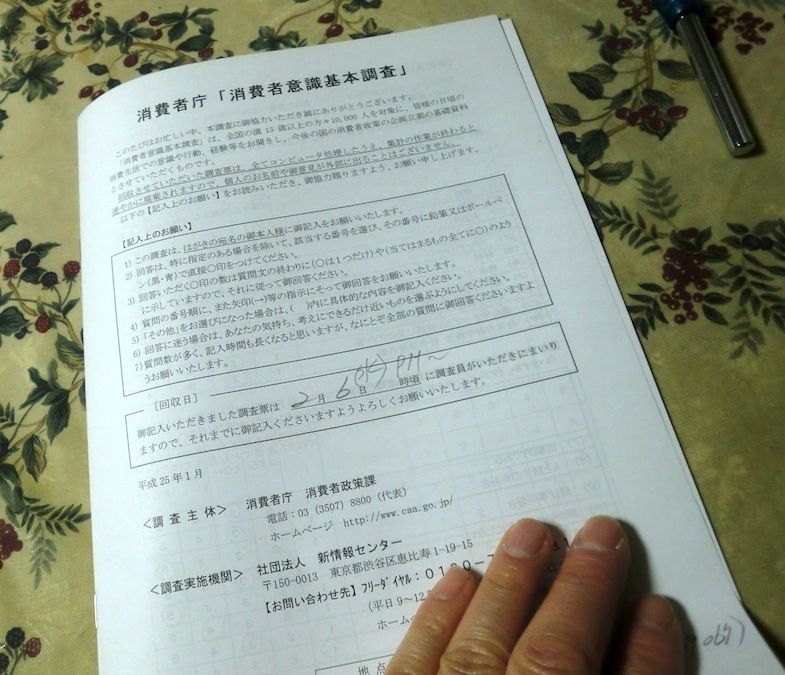 消費者庁「消費者意識基本調査」
このたびはお忙しい中、本調査に御協力いただき誠にありがとうございます。
「消費者意識基本調査」は、全国の満15歳以上の方々10,000人を対象に、皆様の日頃の
消費生活での意識や行動、経験等をお聞きし、今後の国の消費者政策の企画立案の基礎資料
とさせていただくものです。
回収させていただいた調査票は、全てコンピュータ処理したうえ、集計の作業が終わると
速やかに廃棄されますので、個人のお名前や御意見が外部に出ることはございません。
以下の【記入上のお願い】をお読みいただき、御協力賜りますよう、お願い申し上げます。
【記入上のお願い】
1) この調査は、はがきの宛名の御本人様に御記入をお願いいたします。
2) 回答は、特に指定のある場合を除いて、該当する番号を選び、その番号に鉛筆又はボールペ
ン(黒・青)で直接○印をつけてください。
3) 回答いただく○印の数は質問文の終わりに(○は1つだけ)や(当てはまるもの全てに○)のよう
に示していますので、それに従って御回答ください。
4) 質問の番号順に、また矢印(→)等の指示にそって御回答をお願いいたします。
5) 「その他」をお選びになった場合は、( )内に具体的な内容を御記入ください。
6) 回答に迷う場合は、あなたの気持ち、考えにできるだけ近いものを選ぶようにしてください。
7) 質問数が多く、記入時間も長くなると思いますが、なにとぞ全部の質問に御回答くださいますよ
うお願いいたします。
[回収日]
御記入いただきました調査票は 2月 6日(水) PM~ 時頃に調査員がいただきにまいり
ますので、それまでに御記入くださいますようよろしくお願いいたします。
平成25年1月
<調査主体> 消費者庁 消費者政策課
電話:03 (3507) 8800 (代表)
ホームページ http://www.caa.go.jp/
<調査実施機関> 社団法人 新情報センター
〒150-0013 東京都渋谷区恵比寿1-19-15
【お問い合わせ先】フリーダイヤル:0120-
(平日9~12
ホームペ
地点